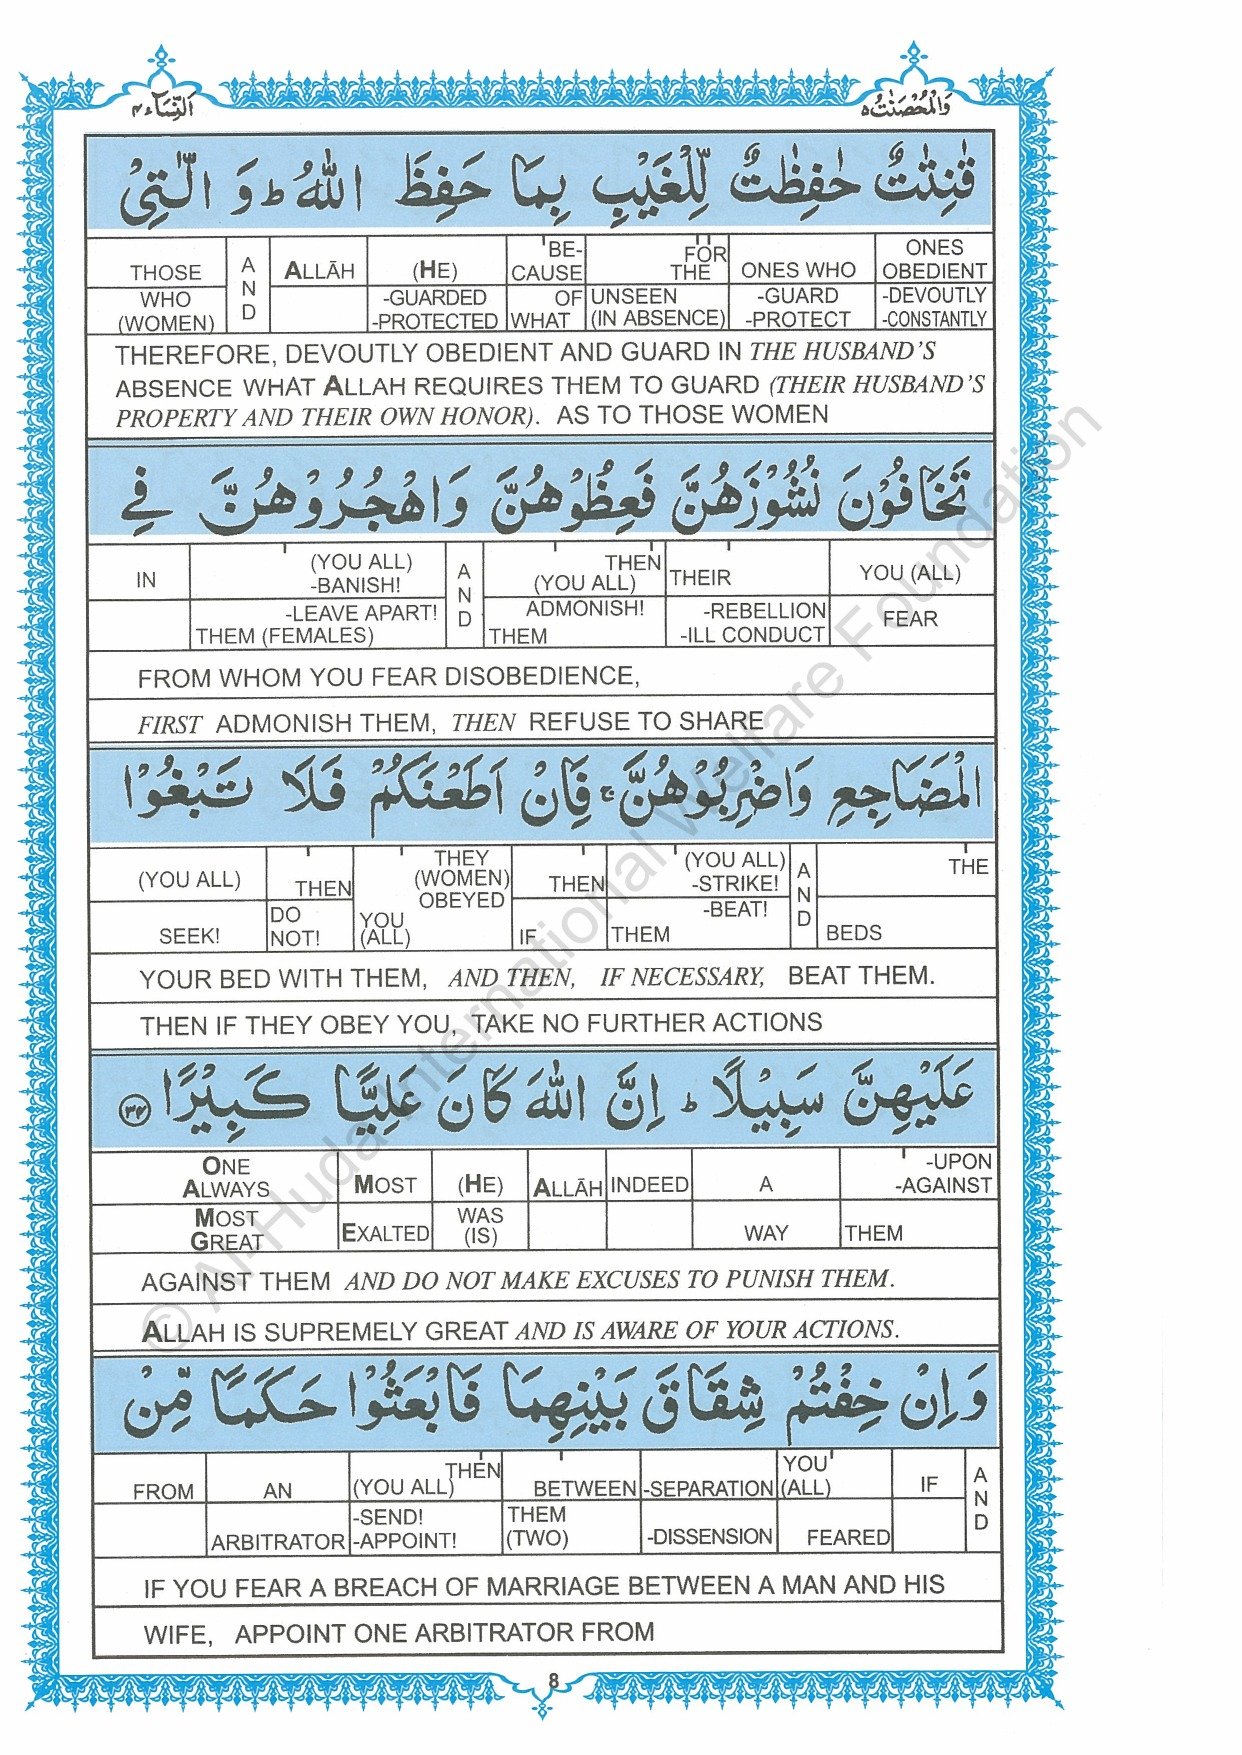 وَالْمُحْصَنٰتُ ٥
اَلنِّسَآء ٤
قٰنِتٰتٌ حٰفِظٰتٌ لِّلْغَيْبِ بِمَا حَفِظَ اللّٰهُ ؕ وَ الّٰتِىْ
THOSE WHO (WOMEN) | AND | ALLĀH | (HE) -GUARDED -PROTECTED | BE-CAUSE OF WHAT | FOR THE UNSEEN (IN ABSENCE) | ONES WHO -GUARD -PROTECT | ONES OBEDIENT -DEVOUTLY -CONSTANTLY
THEREFORE, DEVOUTLY OBEDIENT AND GUARD IN THE HUSBAND'S
ABSENCE WHAT ALLAH REQUIRES THEM TO GUARD (THEIR HUSBAND'S
PROPERTY AND THEIR OWN HONOR). AS TO THOSE WOMEN
تَخَافُوْنَ نُشُوْزَهُنَّ فَعِظُوْهُنَّ وَاهْجُرُوْهُنَّ فِى
IN | (YOU ALL) -BANISH! -LEAVE APART! THEM (FEMALES) | AND | THEN (YOU ALL) ADMONISH! THEM | THEIR -REBELLION -ILL CONDUCT | YOU (ALL) FEAR
FROM WHOM YOU FEAR DISOBEDIENCE,
FIRST ADMONISH THEM, THEN REFUSE TO SHARE
الْمَضَاجِعِ وَاضْرِبُوْهُنَّ ۚ فَاِنْ اَطَعْنَكُمْ فَلَا تَبْغُوْا
(YOU ALL) SEEK! | THEN DO NOT! | THEY (WOMEN) OBEYED YOU (ALL) | THEN IF | (YOU ALL) -STRIKE! -BEAT! THEM | AND | THE BEDS
YOUR BED WITH THEM, AND THEN, IF NECESSARY, BEAT THEM.
THEN IF THEY OBEY YOU, TAKE NO FURTHER ACTIONS
عَلَيْهِنَّ سَبِيْلًا ؕ اِنَّ اللّٰهَ كَانَ عَلِيًّا كَبِيْرًا ٣٤
ONE ALWAYS MOST GREAT | MOST EXALTED | (HE) WAS (IS) | ALLĀH | INDEED | A WAY | -UPON -AGAINST THEM
AGAINST THEM AND DO NOT MAKE EXCUSES TO PUNISH THEM.
ALLAH IS SUPREMELY GREAT AND IS AWARE OF YOUR ACTIONS.
وَاِنْ خِفْتُمْ شِقَاقَ بَيْنِهِمَا فَابْعَثُوْا حَكَمًا مِّنْ
FROM | AN ARBITRATOR | THEN (YOU ALL) -SEND! -APPOINT! | BETWEEN THEM (TWO) | -SEPARATION -DISSENSION | YOU (ALL) FEARED | IF | AND
IF YOU FEAR A BREACH OF MARRIAGE BETWEEN A MAN AND HIS
WIFE, APPOINT ONE ARBITRATOR FROM
8
© Al-Huda International Welfare Foundation